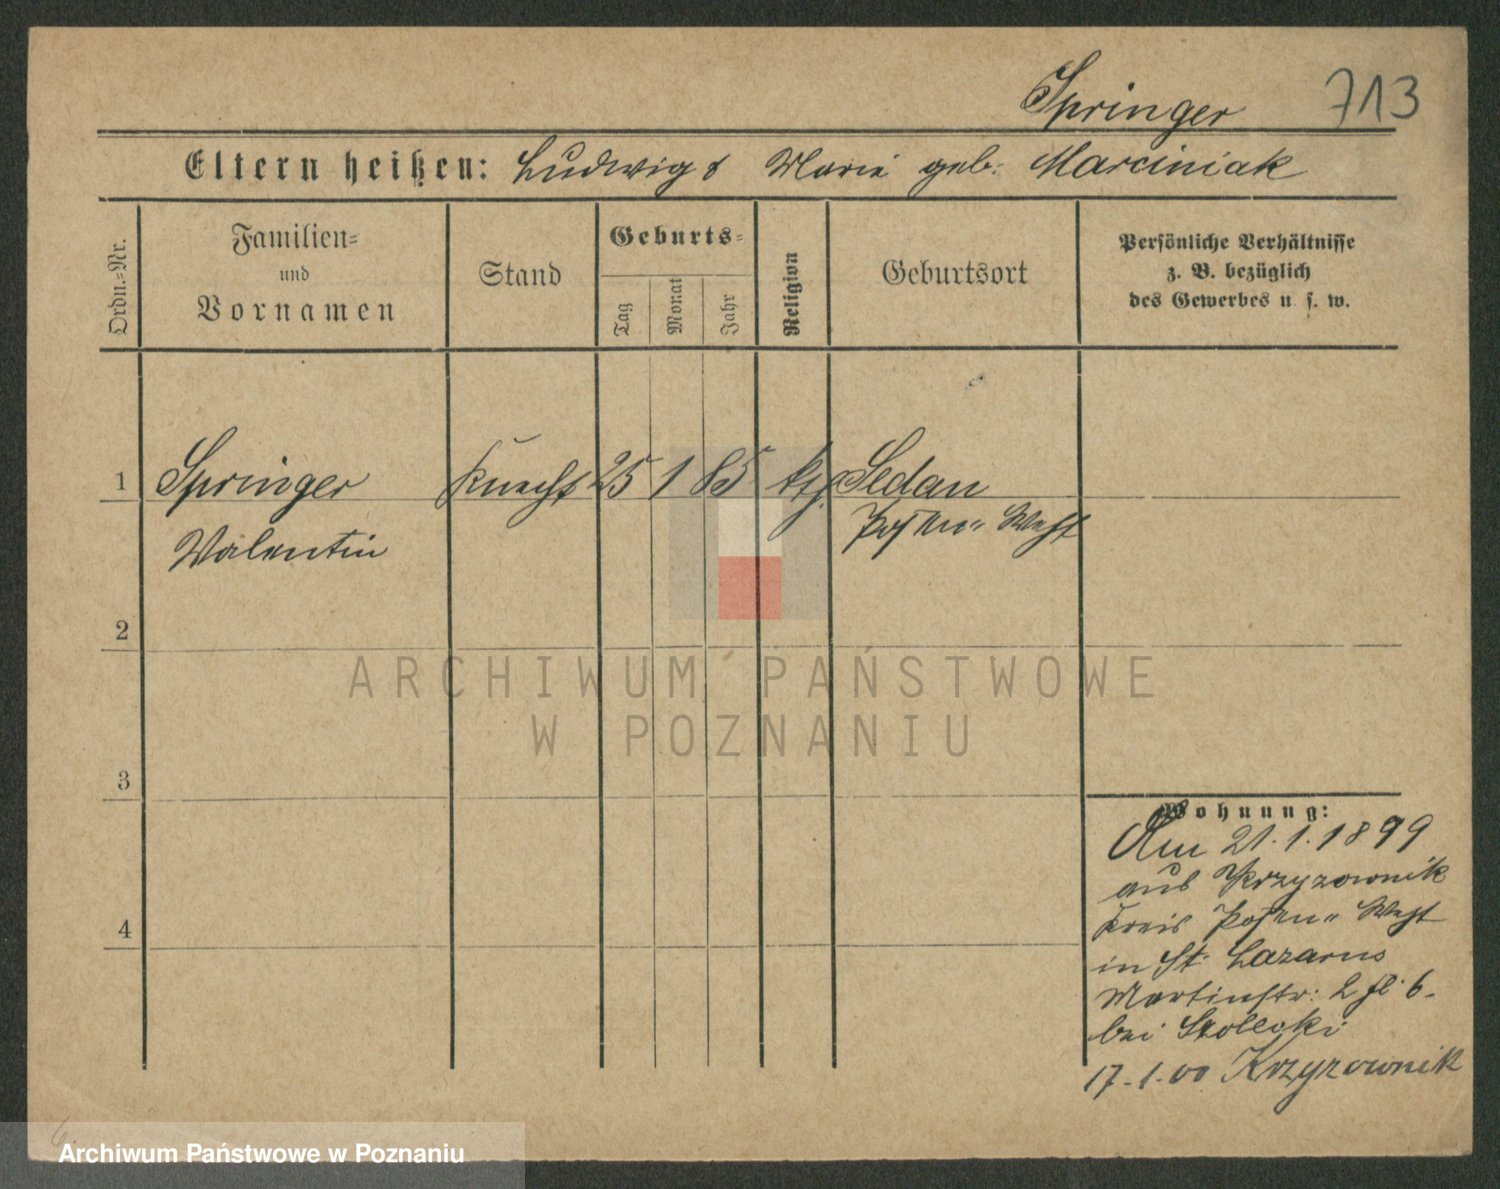 Springer 713
Eltern heißen: Ludwig & Marie geb. Marciniak
Ordn.=Nr.
Familien=
und
Vornamen
Stand
Geburts=
Tag
Monat
Jahr
Religion
Geburtsort
Persönliche Verhältnisse
z. B. bezüglich
des Gewerbes u. s. w.
1 Springer Knecht 25 1 85 kth. Sedan
Valentin Posen=West
2
3
4
Wohnung:
Am 21.1.1899
aus Krzyzownik
Kreis Posen=West
in St. Lazarus
Martinstr: 6.
bei
17.1.00 Krzyzownik
ARCHIWUM PAŃSTWOWE
W POZNANIU
Archiwum Państwowe w Poznaniu